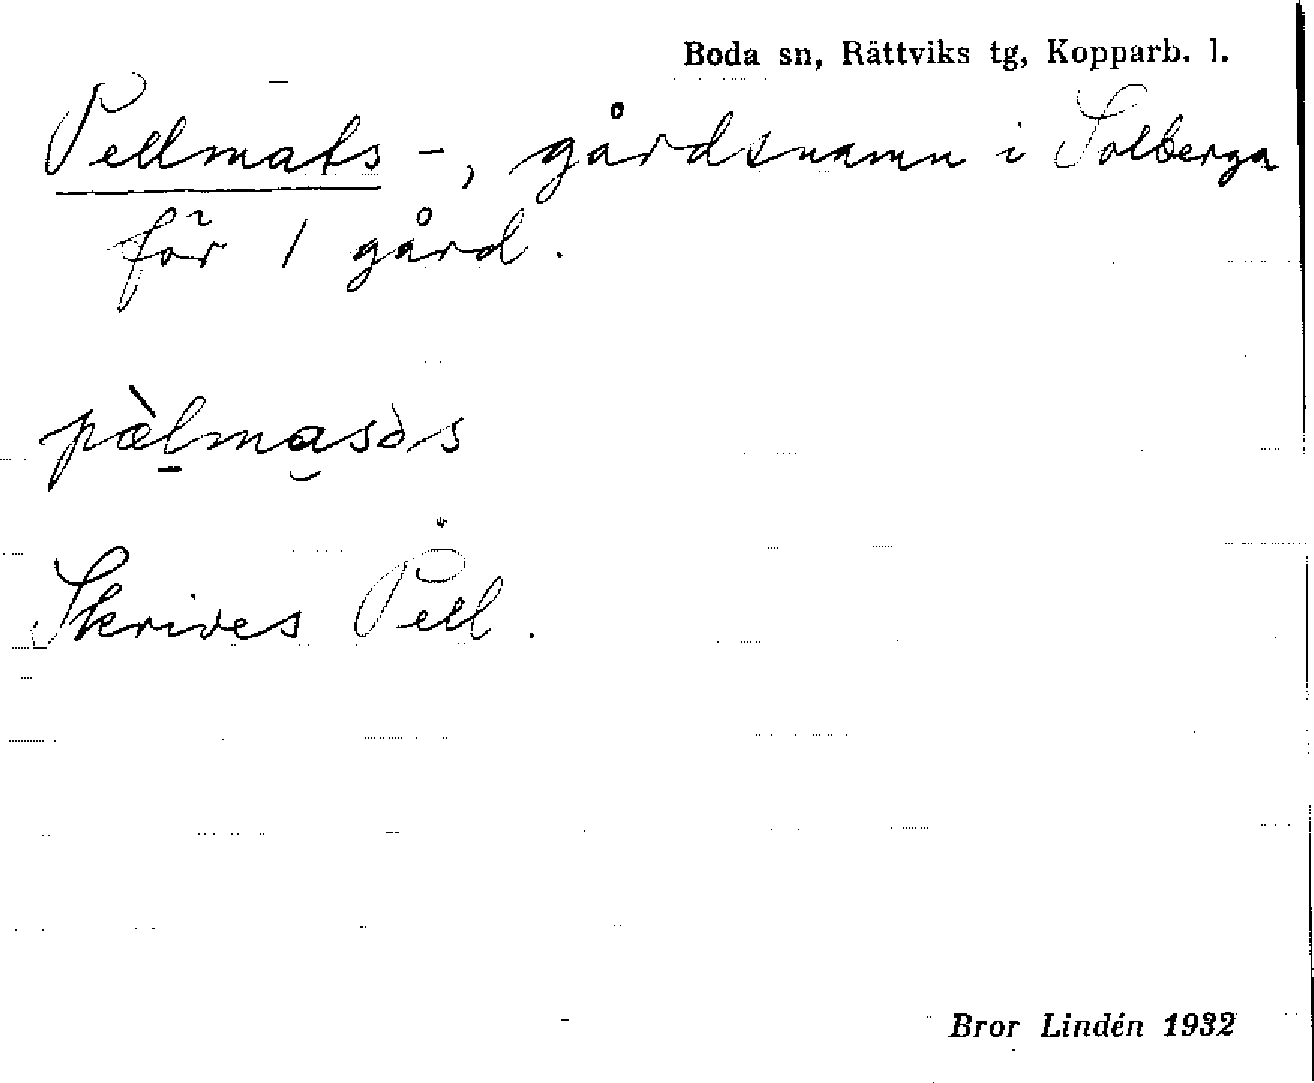 Boda sn, Rättviks tg, Kopparb. l.
Pellmats -, gårdsnamn i Solberga
för 1 gård.
pæ̀l̠mas̀əs
Skrives Pell.
Bror Lindén 1932